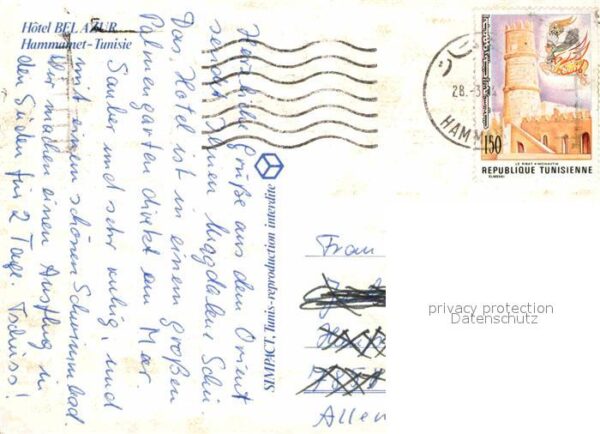 Hôtel BEL AZUR
Hammamet-Tunisie
Herzliche Grüße aus dem Orient
sendet Ihnen Magdalene Schi.
Das Hotel ist in einem großen
Palmengarten direkt am Meer.
Sauber und sehr ruhig, und
mit einem schönen Schwimmbad.
Wir machen einen Ausflug in
den Süden für 2 Tage. Tschüss!
SIMPACT, Tunis-reproduction interdite
28.-3
HAMM
150
LE RIBAT A MONASTIR
REPUBLIQUE TUNISIENNE
Frau
Allen
privacy protection
Datenschutz